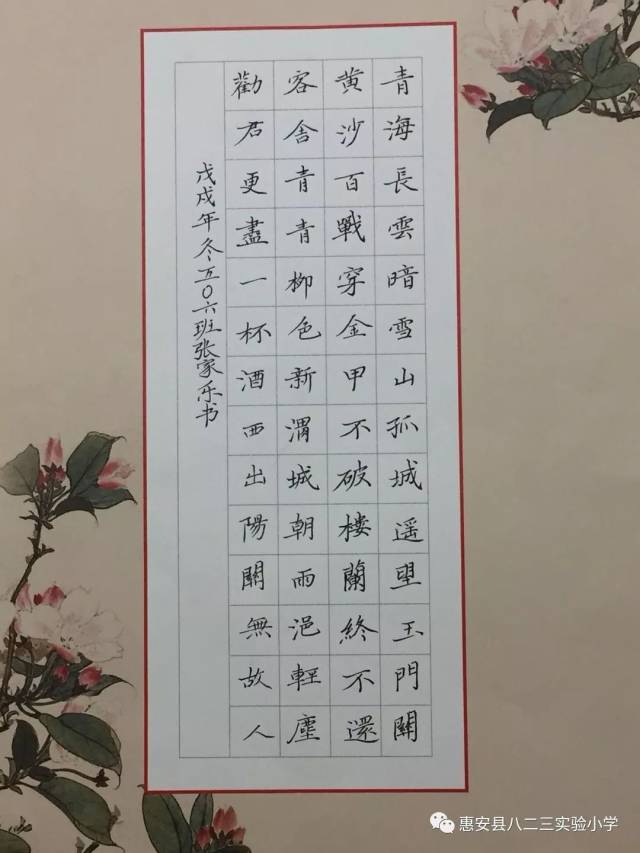 青海長雲暗雪山孤城遥望玉門關
黄沙百戰穿金甲不破樓蘭終不還
客舍青青柳色新渭城朝雨浥輕塵
勸君更盡一杯酒西出陽關無故人
戊戌年冬五〇六班张家乐书
惠安县八二三实验小学